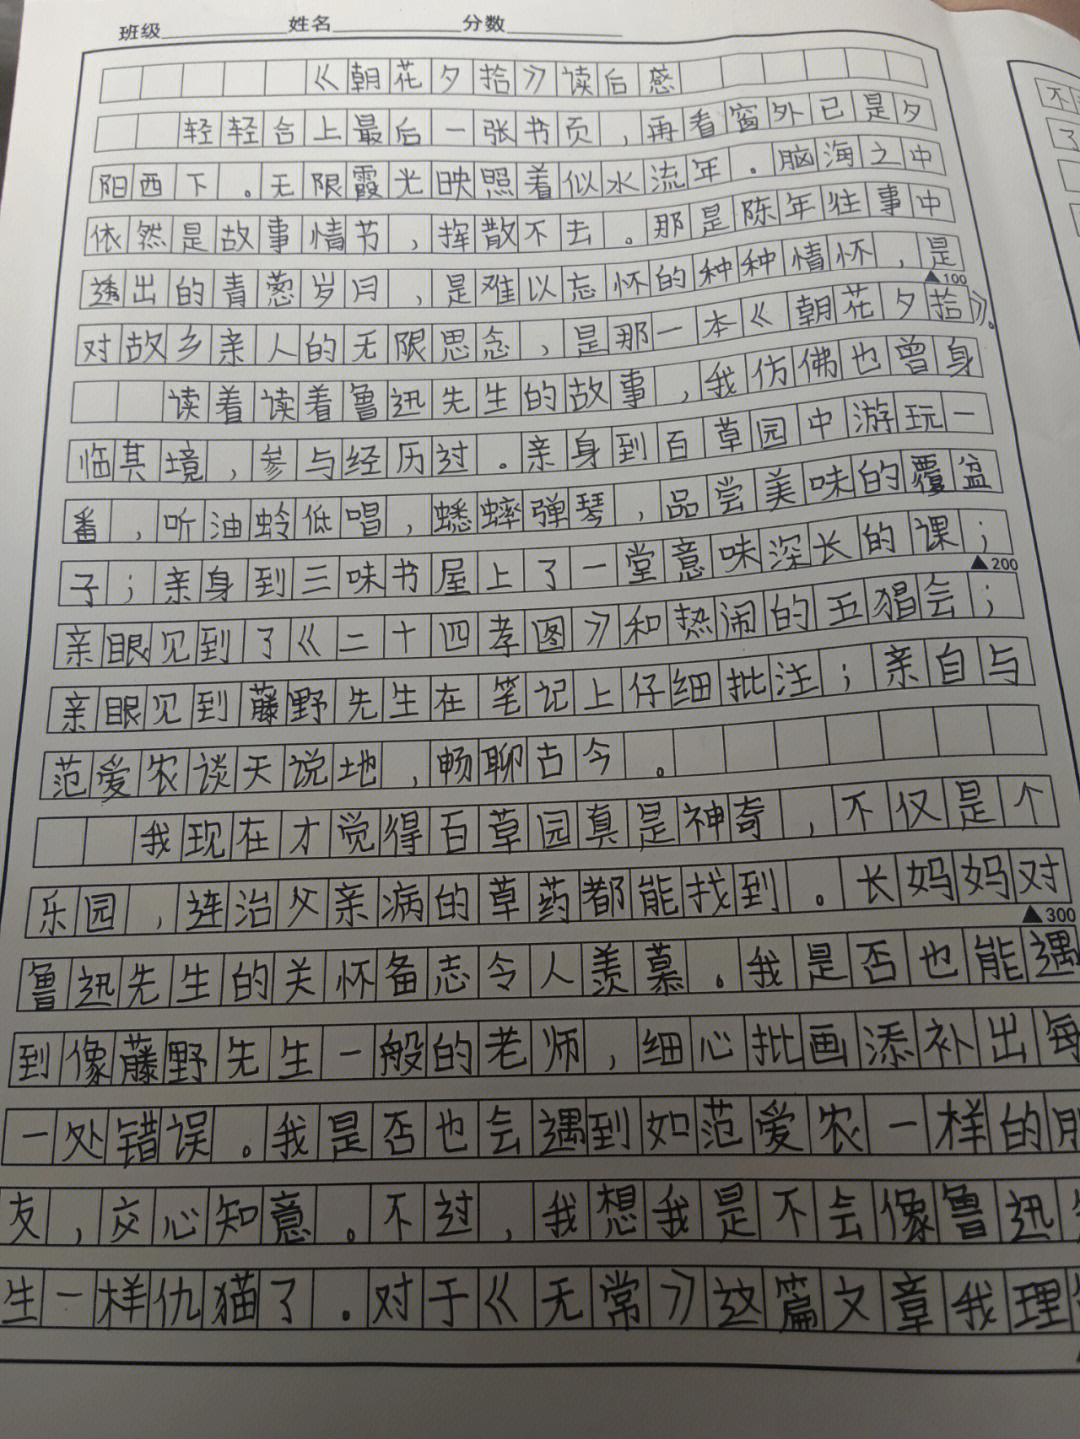 班级 姓名 分数
《朝花夕拾》读后感
轻轻合上最后一张书页，再看窗外已是夕
阳西下。无限霞光映照着似水流年。脑海之中
依然是故事情节，挥散不去。那是陈年往事中
透出的青葱岁月，是难以忘怀的种种情怀，是
▲100
对故乡亲人的无限思念，是那一本《朝花夕拾》。
读着读着鲁迅先生的故事，我仿佛也曾身
临其境，参与经历过。亲身到百草园中游玩一
番，听油蛉低唱，蟋蟀弹琴，品尝美味的覆盆
子；亲身到三味书屋上了一堂意味深长的课；
▲200
亲眼见到了《二十四孝图》和热闹的五猖会；
亲眼见到藤野先生在笔记上仔细批注；亲自与
范爱农谈天说地，畅聊古今。
我现在才觉得百草园真是神奇，不仅是个
乐园，连治父亲病的草药都能找到。长妈妈对
▲300
鲁迅先生的关怀备志令人羡慕。我是否也能遇
到像藤野先生一般的老师，细心批画添补出每
一处错误。我是否也会遇到如范爱农一样的
友，交心知意。不过，我想我是不会像鲁迅
生一样仇猫了。对于《无常》这篇文章我理
不
了